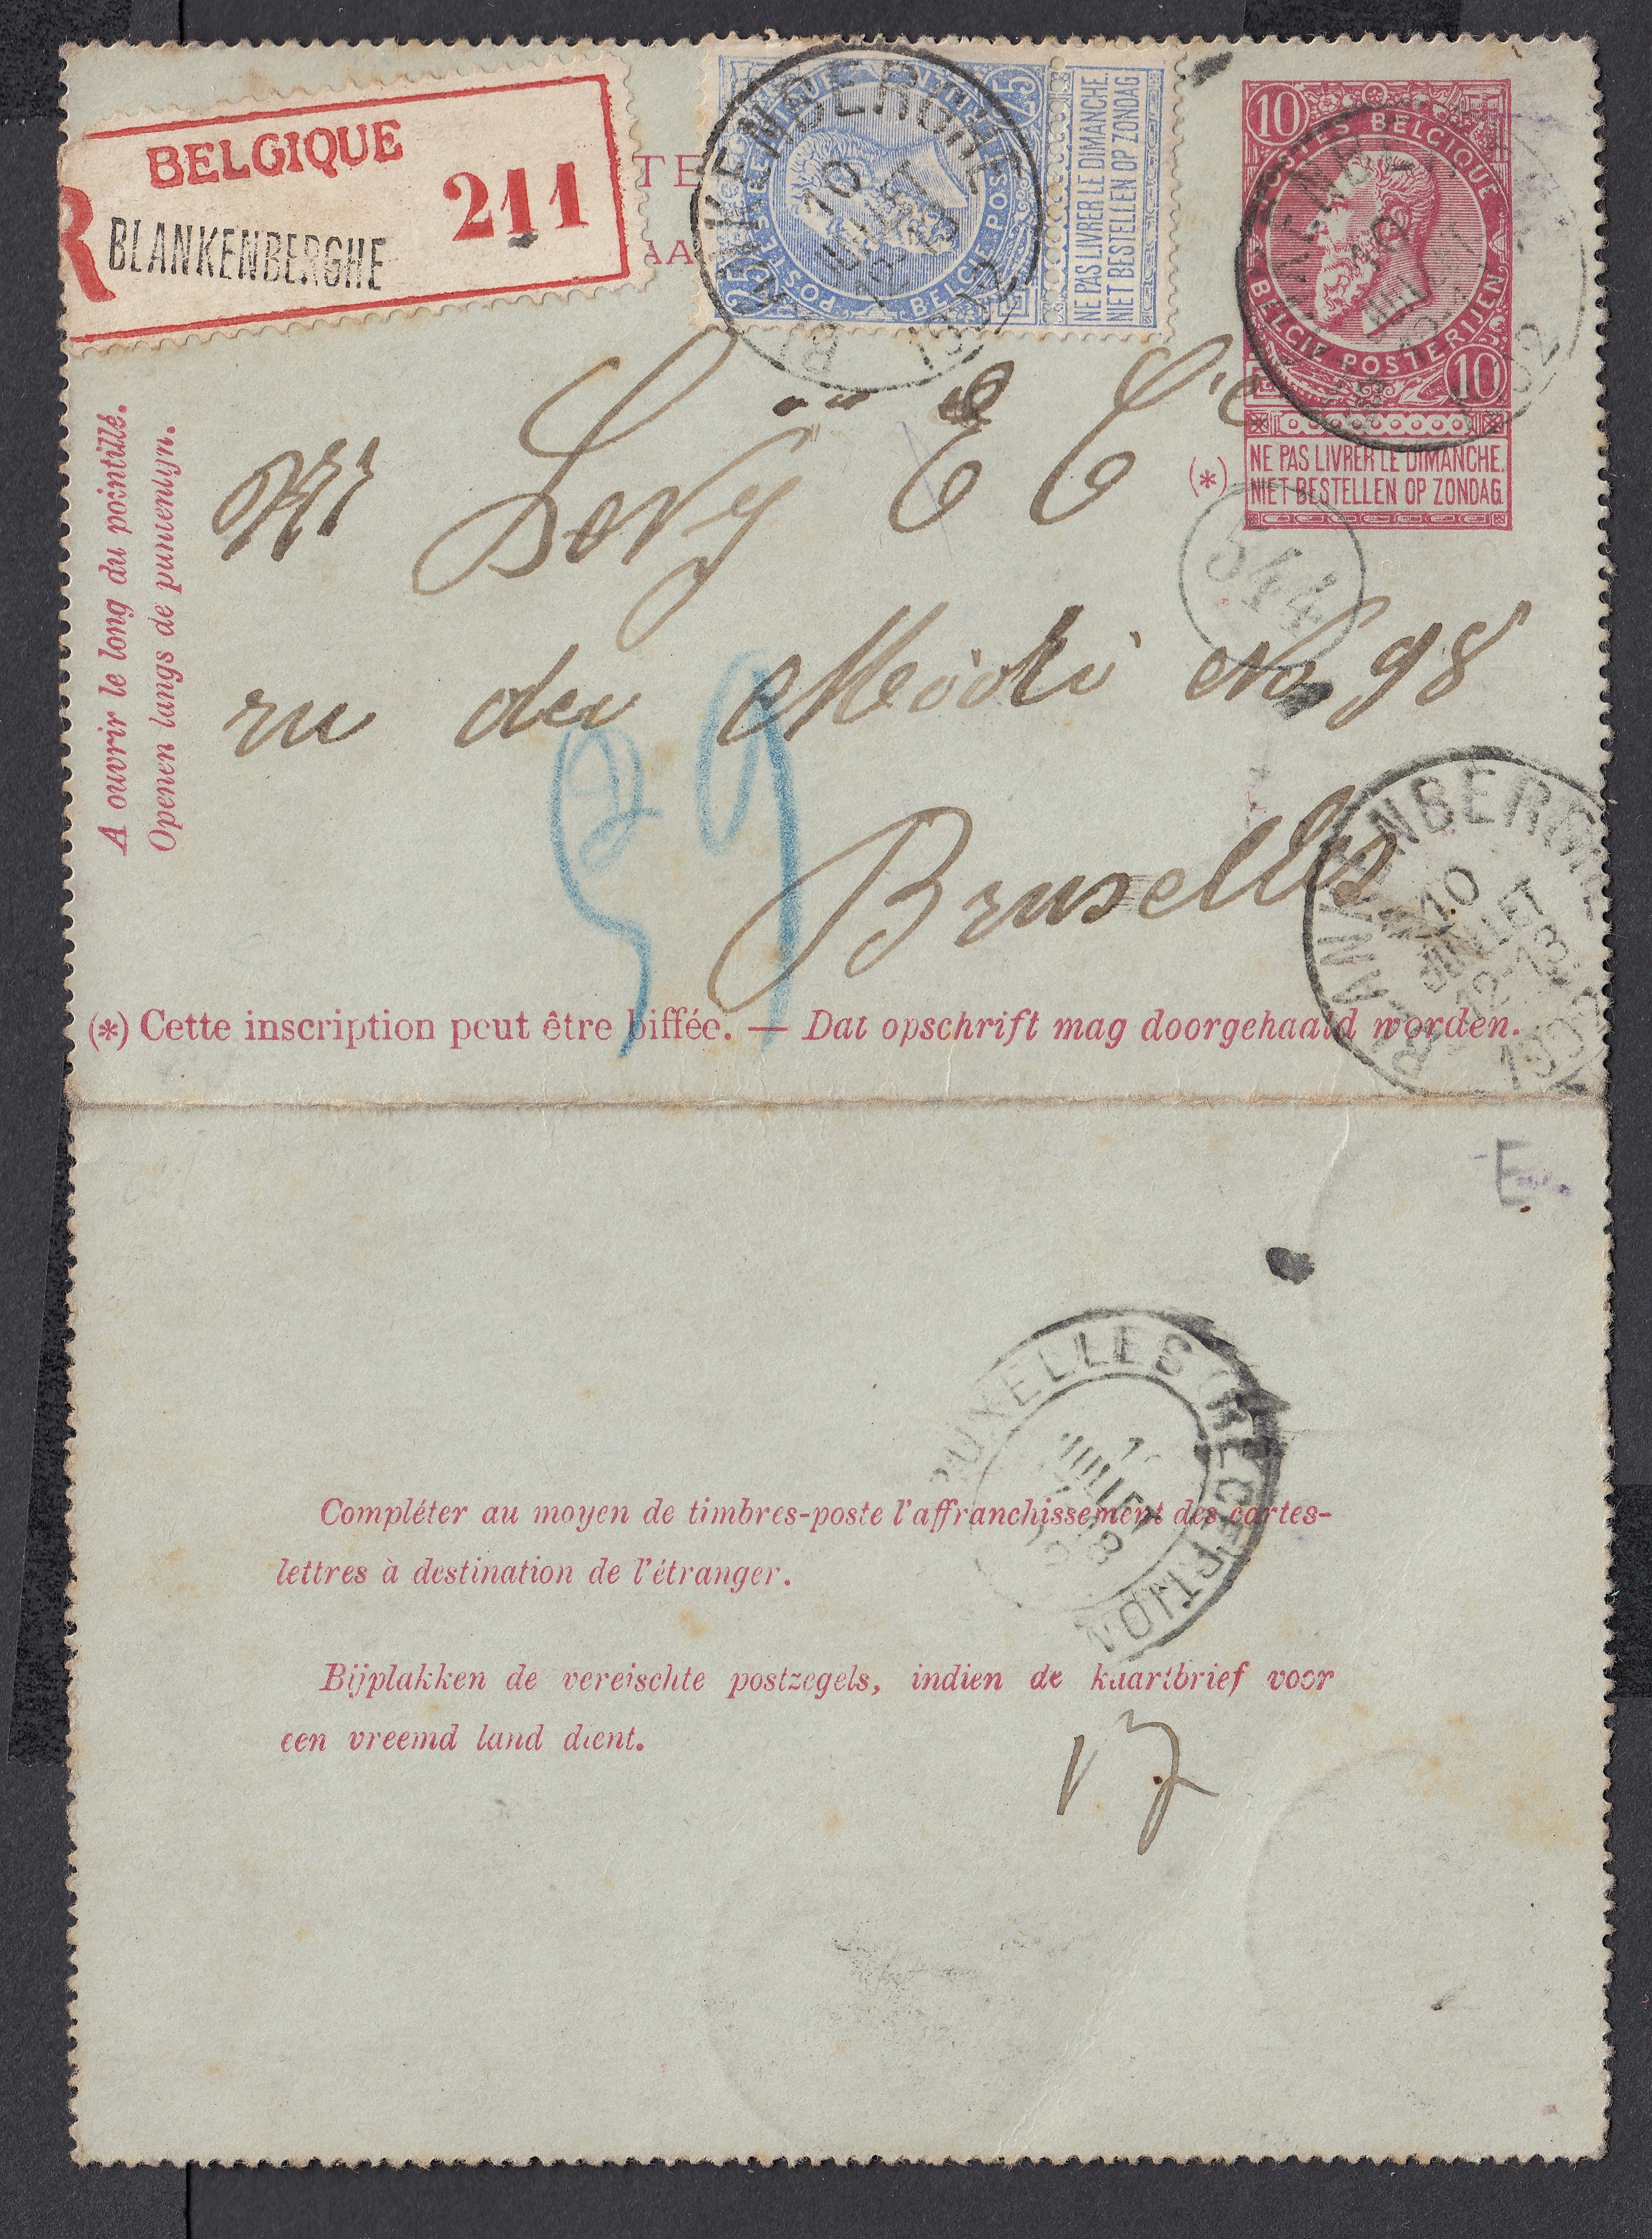 BELGIQUE
R
BLANKENBERGHE
211
TE
AA
BLANKENBERGHE
10
JUILLET
12-13
1902
25
POSTES BELGIQUE
BELGIE POSTERIJEN
25
NE PAS LIVRER LE DIMANCHE.
NIET BESTELLEN OP ZONDAG
10
POSTES BELGIQUE
BELGIE POSTERIJEN
10
10
1902
(*)
NE PAS LIVRER LE DIMANCHE.
NIET BESTELLEN OP ZONDAG
344
A ouvrir le long du pointillé.
Openen langs de puntenlijn.
Mr Levy & Cie
ru du Midi No 98
Bruxelles
BLANKENBERGHE
10
JUILLET
12-13
1902
(*) Cette inscription peut être biffée. — Dat opschrift mag doorgehaald worden.
E
BRUXELLES (RECEPTION
JUILLET
Compléter au moyen de timbres-poste l'affranchissement des cartes-
lettres à destination de l'étranger.
Bijplakken de vereischte postzegels, indien de kaartbrief voor
een vreemd land dient.